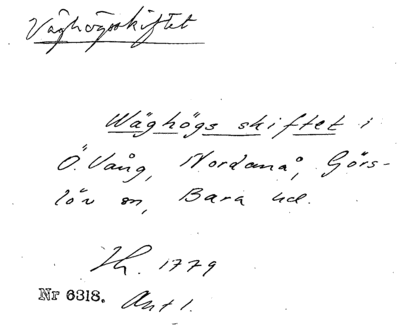 Våghögsskiftet
Wäghögs skiftet i
Ö. Vång, Nordanå, Görs-
löv sn, Bara hd.
Lh. 1779
Nr 6318. Akt 1.